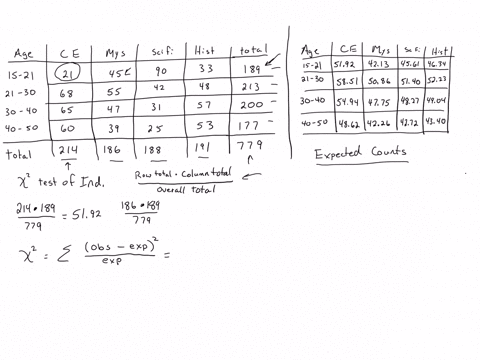 Age CE Mys Scifi Hist total
15-21 21 45 90 33 189
21-30 68 55 42 48 213
30-40 65 47 31 57 200
40-50 60 39 25 53 177
total 214 186 188 191 779
Age CE Mys Scifi Hist
15-21 51.92 45.13 45.61 46.34
21-30 58.51 50.86 51.40 52.23
30-40 54.94 47.75 48.27 49.04
40-50 48.62 42.26 42.72 43.40
Expected Counts
χ² test of Ind.
Row total · Column total
overall total
214 · 189 / 779 = 51.92
186 · 189 / 779
χ² = Σ (obs - exp)² / exp =